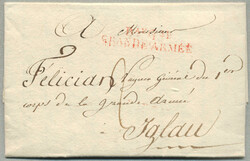 A Monsieur
GRANDE ARMÉE
Félician Payeur Général du 1er
corps de la grande Armée
à Iglau